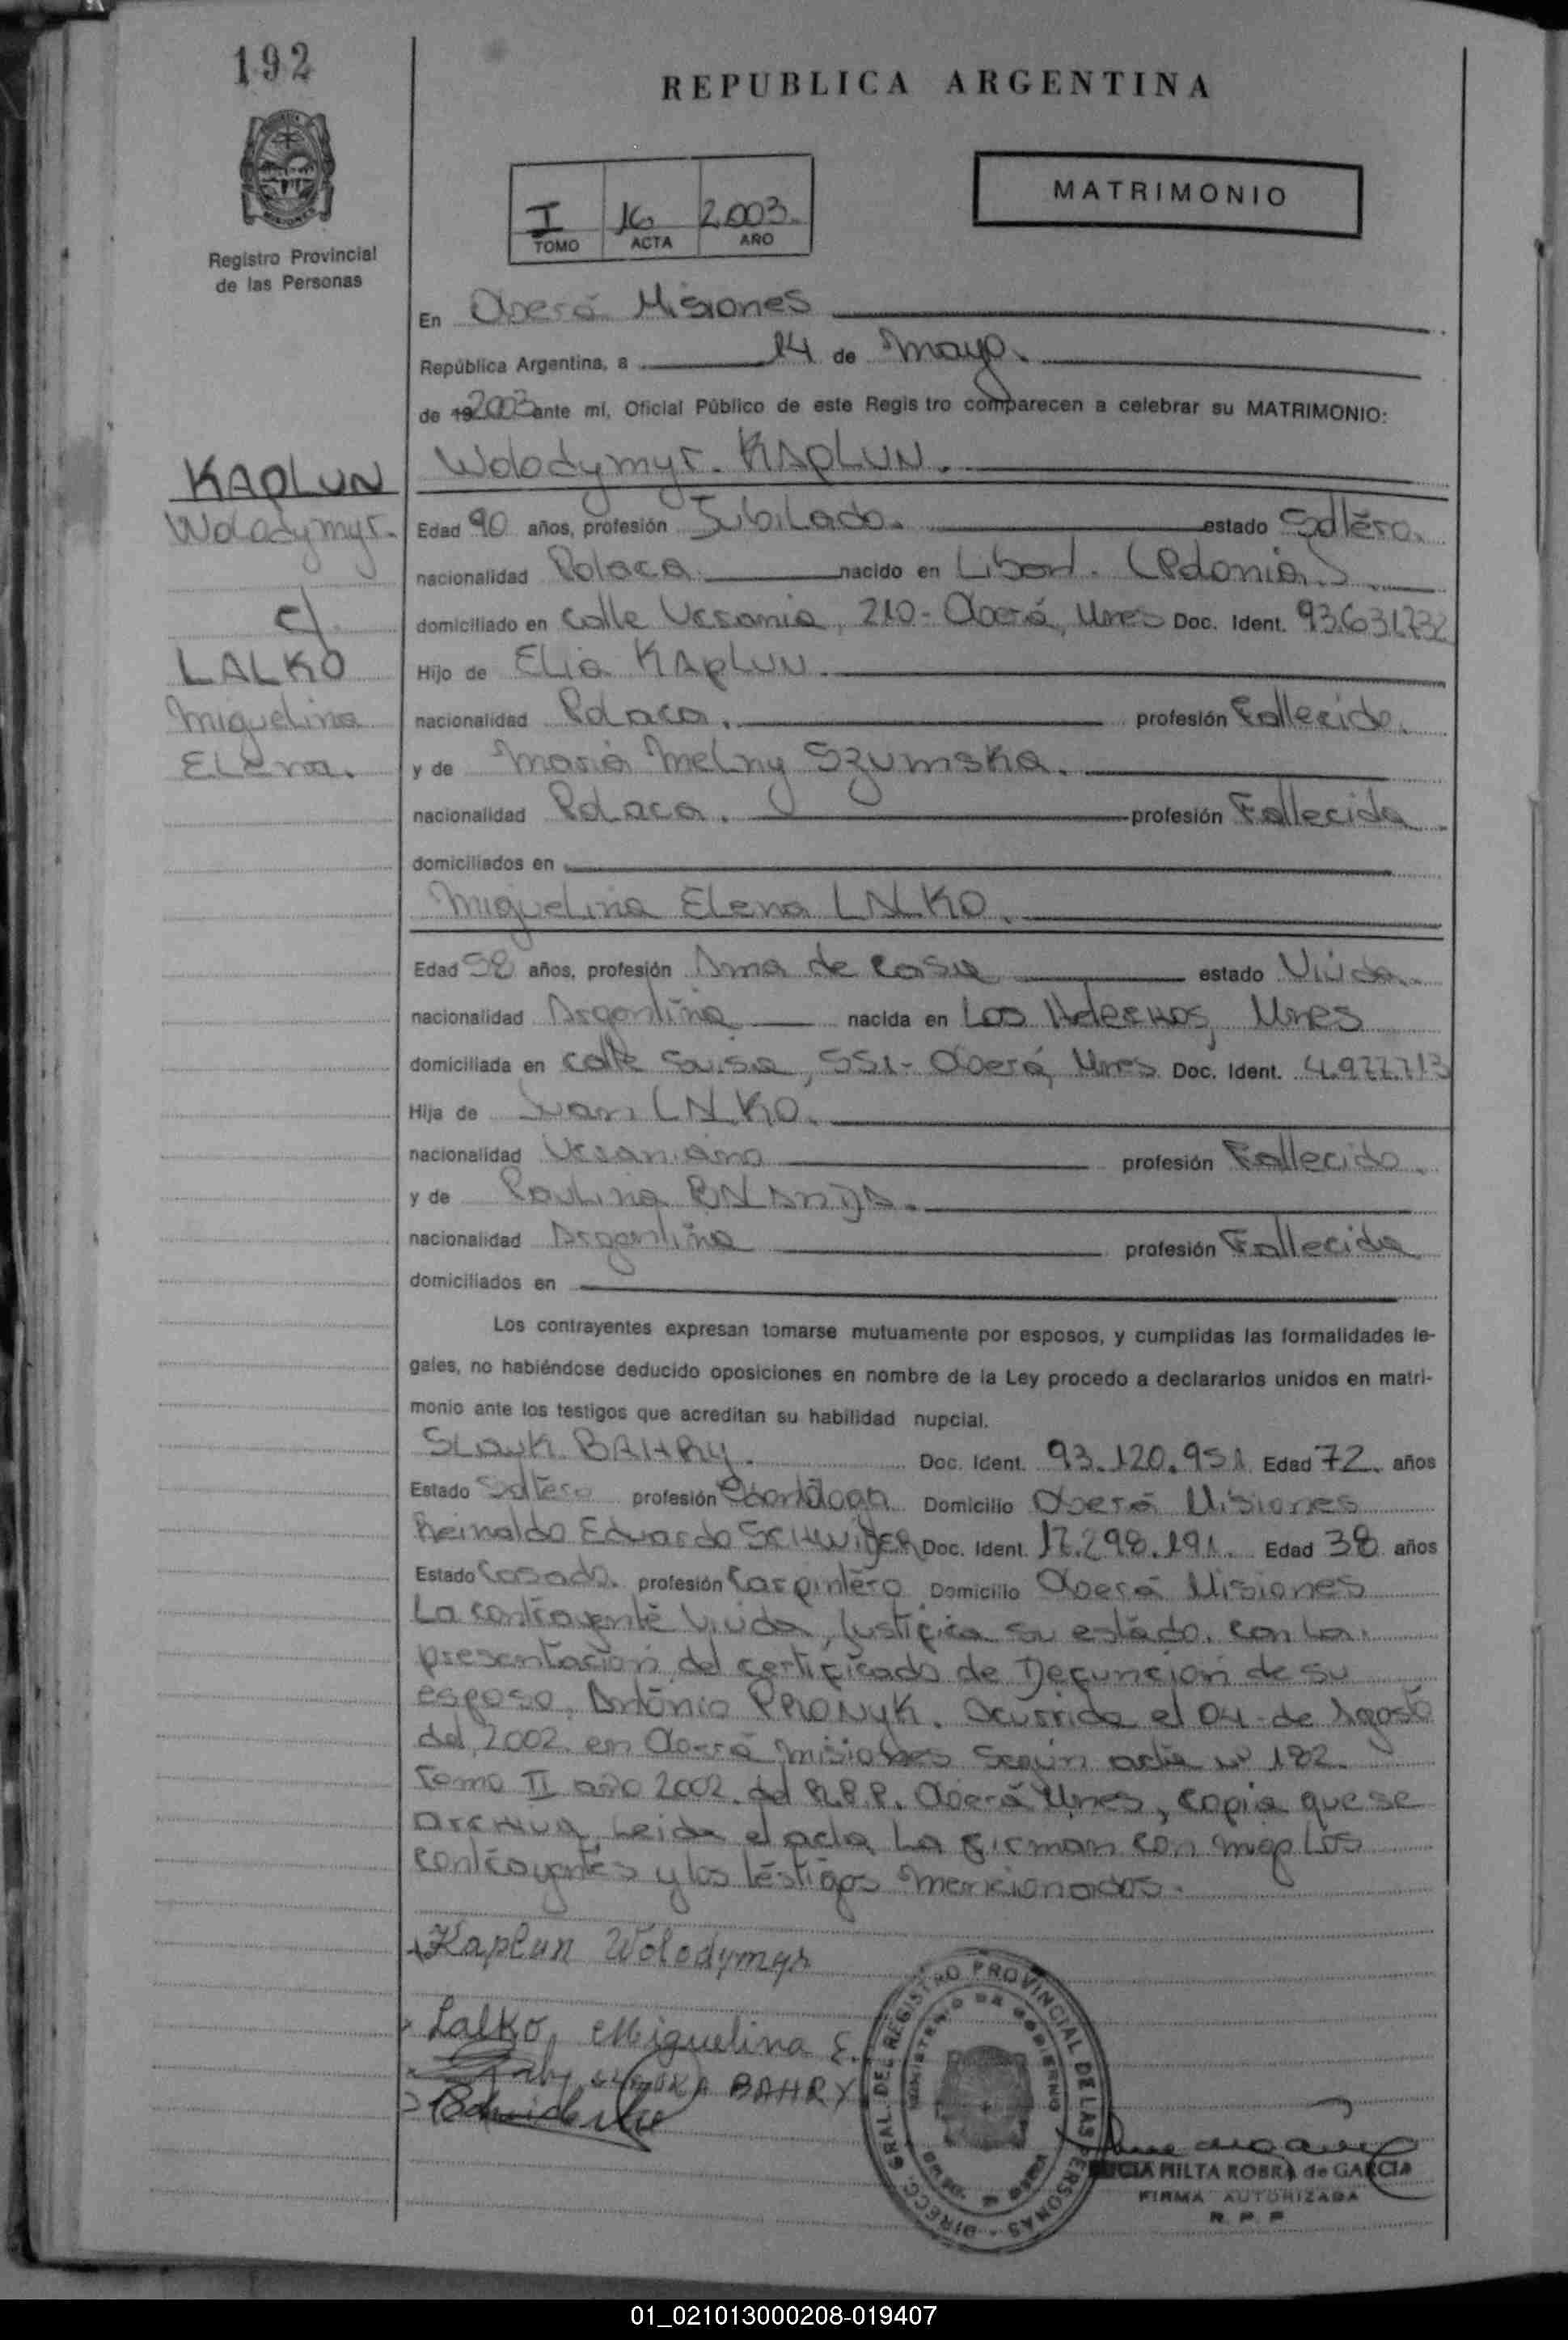 192
REPUBLICA ARGENTINA
MATRIMONIO
I 16 2.003.
TOMO ACTA AÑO
Registro Provincial
de las Personas
En Oberá Misiones
República Argentina, a 14 de mayo.
de 19 2003 ante mí, Oficial Público de este Regis tro comparecen a celebrar su MATRIMONIO:
KAPLUN
Wolodymyr.
c/.
LALKO
Miguelina
Elena.
Wolodymyr. KAPLUN.
Edad 90 años, profesión Jubilado. estado Soltero.
nacionalidad Polaca. nacido en (Polonia)
domiciliado en calle Ucrania, 210 - Oberá, Mnes Doc. Ident. 93.631.732
Hijo de Elia KAPLUN
nacionalidad Polaca. profesión Fallecido.
y de Maria Melny Szumska.
nacionalidad Polaca. profesión Fallecida
domiciliados en
Miguelina Elena LALKO.
Edad 58 años, profesión Ama de casa estado Viuda.
nacionalidad Argentina nacida en Los Helechos, Mnes
domiciliada en calle Suiza, 551 - Oberá, Mnes Doc. Ident. 4.977.713
Hija de Juan LALKO.
nacionalidad Ucraniano profesión Fallecido.
y de Paulina BALANDA.
nacionalidad Argentina profesión Fallecida
domiciliados en
Los contrayentes expresan tomarse mutuamente por esposos, y cumplidas las formalidades le-
gales, no habiéndose deducido oposiciones en nombre de la Ley procedo a declararlos unidos en matri-
monio ante los testigos que acreditan su habilidad nupcial.
BAHRY. Doc. Ident. 93.120.951 Edad 72. años
Estado Soltero profesión Domicilio Oberá Misiones
Reinaldo Eduardo Doc. Ident. 17.298.191. Edad 38 años
Estado Casado. profesión Carpintero Domicilio Oberá Misiones
La contrayente Viuda, Justifica su estado, con la
presentación del certificado de Defunción de su
esposo, Antonio PRONYK. Ocurrida el 04 de Agosto
del 2002 en Oberá Misiones Según acta nº 182
Tomo II año 2002. del R.P.P. Oberá Mnes, copia que se
archiva, Leida el acta, La firman con migo Los
contrayentes y los testigos mencionados.
Kaplun Wolodymyr
Lalko, Miguelina E.
BAHRY
DIRECC. GRAL. DEL REGISTRO PROVINCIAL DE LAS PERSONAS
MINISTERIO DE GOBIERNO
MILTA ROBRA de GARCIA
FIRMA AUTORIZADA
R. P. P.
01_021013000208-019407